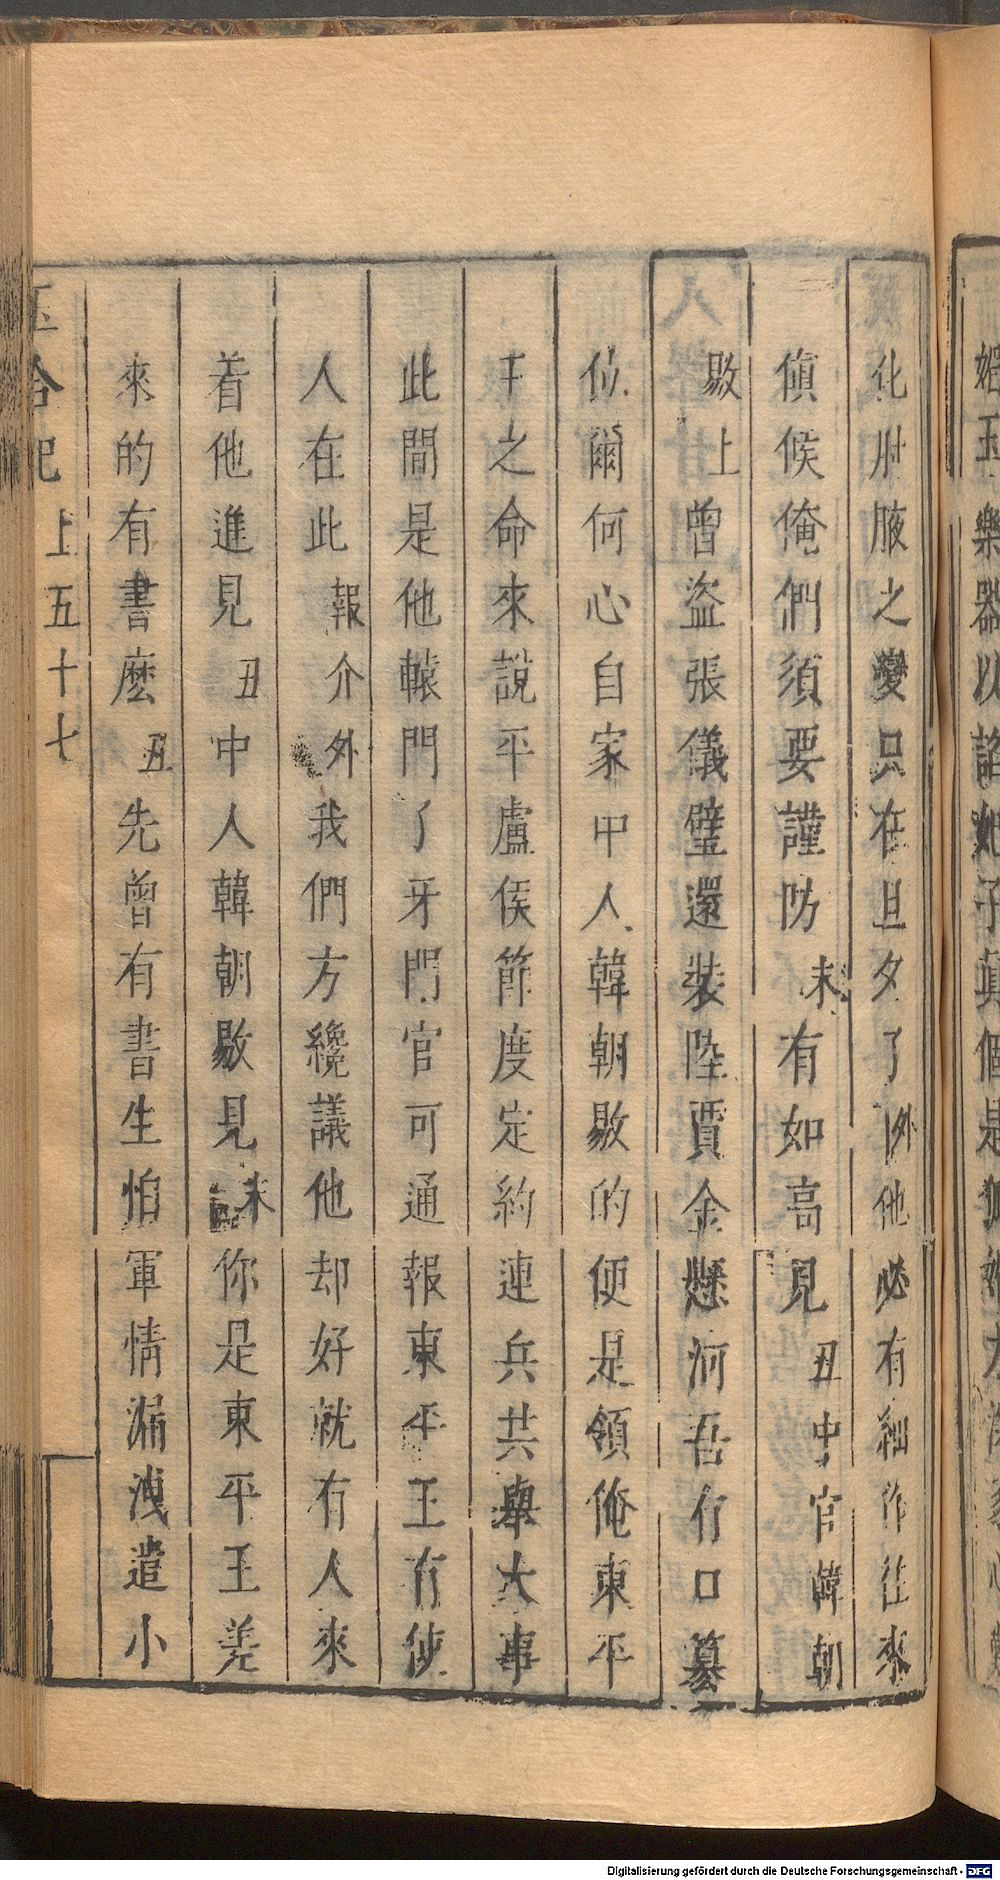 媚玉樂器以諂妃子眞個是
化肘腋之變只在旦夕了外他必有細作往來
偵候俺們須要謹防末有如高見丑中官韓朝
敭上曾盜張儀璧還裝陸賈金懸河吾有口纂
位爾何心自家中人韓朝敭的便是領俺東平
王之命來說平盧侯節度定約連兵共舉大事
此間是他轅門了牙門官可通報東平王有使
人在此報介外我們方纔議他却好就有人來
着他進見丑中人韓朝敭見末你是東平王差
來的有書麽丑先曾有書生怕軍情漏洩遣小
玉合記 上五十七
Digitalisierung gefördert durch die Deutsche Forschungsgemeinschaft - DFG